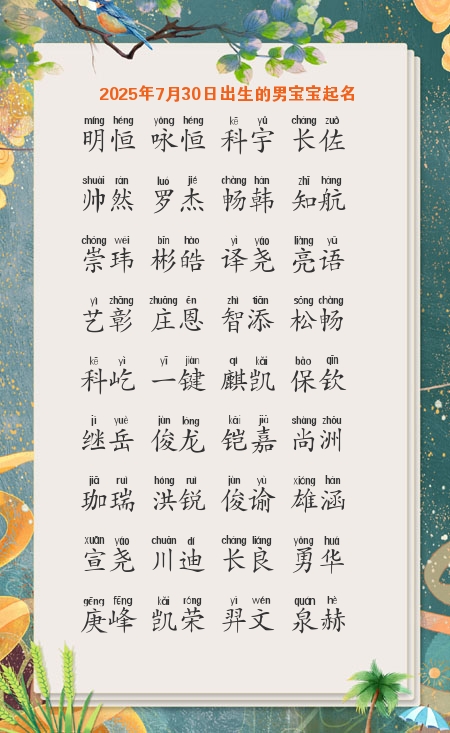 2025年7月30日出生的男宝宝起名
míng héng yǒng héng kē yǔ cháng zuǒ
明恒 咏恒 科宇 长佐
shuài rán luó jié chàng hán zhī háng
帅然 罗杰 畅韩 知航
chóng wěi bīn hào yì yáo liàng yǔ
崇玮 彬皓 译尧 亮语
yì zhāng zhuāng ēn zhì tiān sōng chàng
艺彰 庄恩 智添 松畅
kē yì yī jiàn qí kǎi bǎo qīn
科屹 一键 麒凯 保钦
jì yuè jùn lóng kǎi jiā shàng zhōu
继岳 俊龙 铠嘉 尚洲
jiā ruì hóng ruì jùn yù xióng hán
珈瑞 洪锐 俊谕 雄涵
xuān yáo chuān dí cháng liáng yǒng huá
宣尧 川迪 长良 勇华
gēng fēng kǎi róng yì wén quán hè
庚峰 凯荣 羿文 泉赫